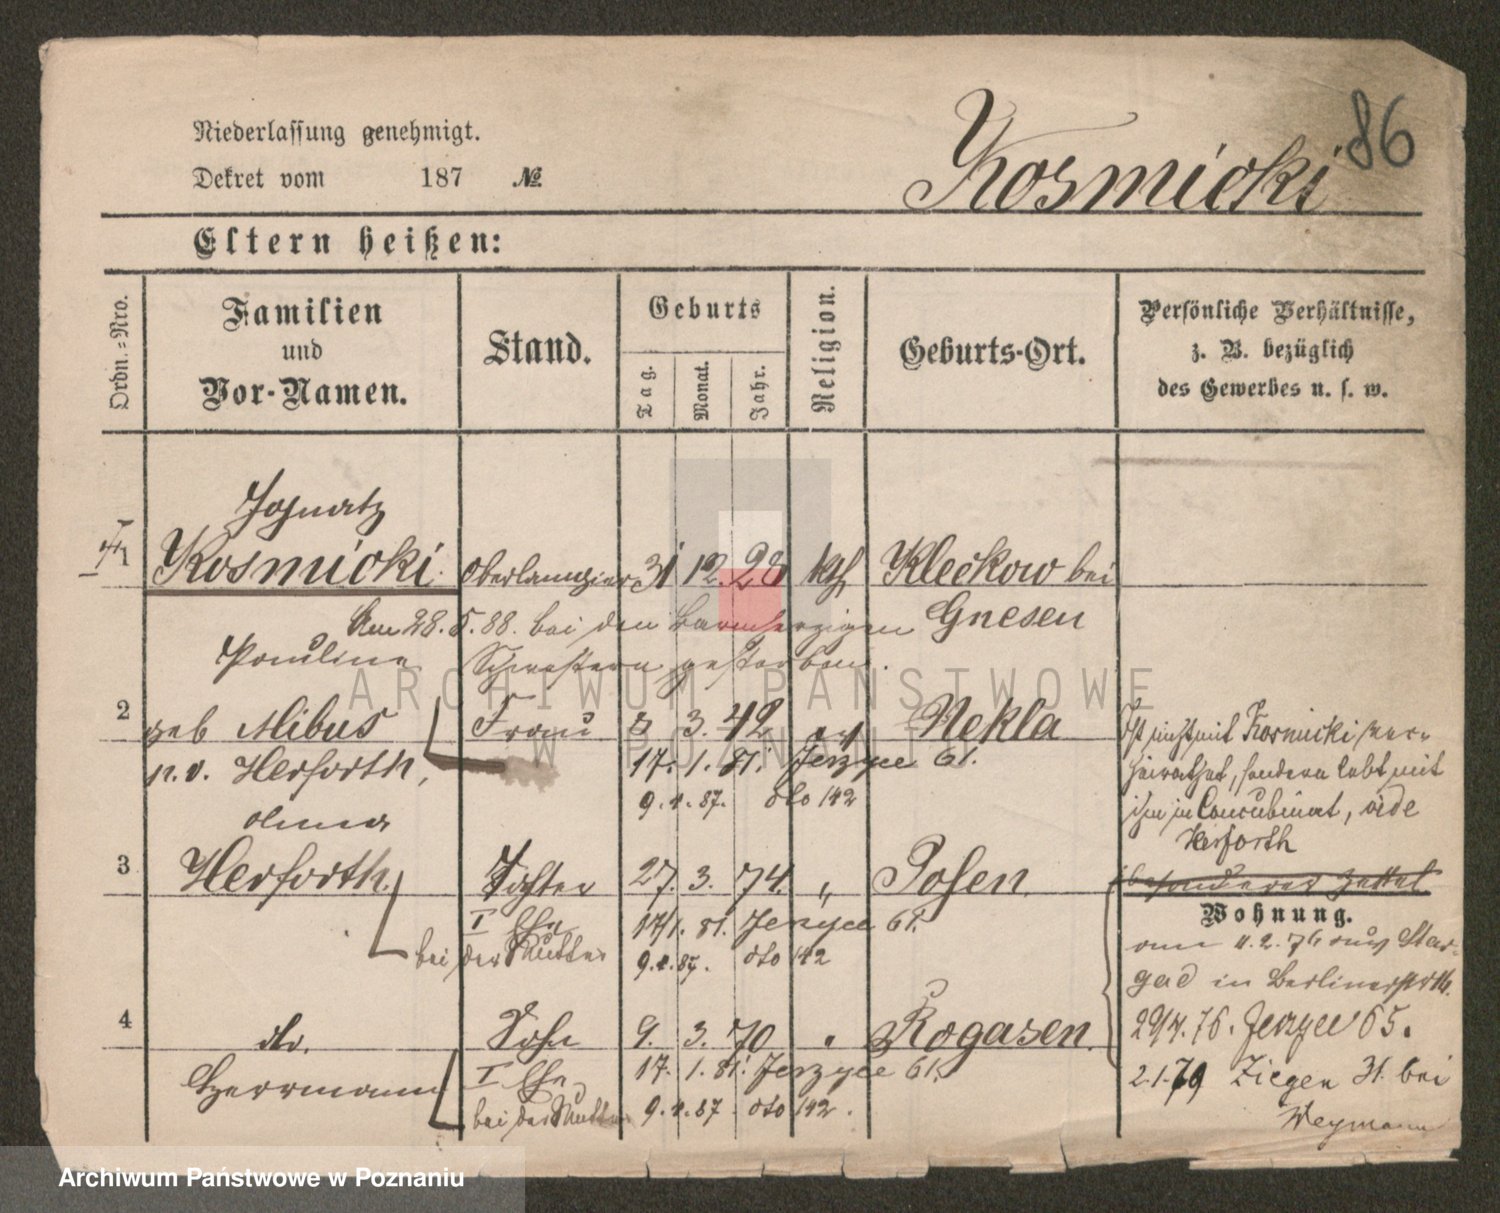 86
Niederlassung genehmigt.
Dekret vom 187 №
Kosmicki
Eltern heißen:
Ordn.=Nro.
Familien
und
Vor-Namen.
Stand.
Geburts
Tag.
Monat.
Jahr.
Religion.
Geburts-Ort.
Persönliche Verhältnisse,
z. B. bezüglich
des Gewerbes u. s. w.
Ignatz
1 Kosmicki 31 12. 28 kth Kleckow bei
Gnesen
Am 28. 5. 88. bei den barmherzigen
Schwestern gestorben.
Pauline
2 geb Mibus Frau 3. 42 Nekla
n. v. Herforth, 17. 1. 81. Jerzyce 61.
9. 4. 87. dto 142
Ist nicht mit Kosmicki ver-
heirathet, sondern lebt mit
ihm in Concubinat, vide
Herforth
besonderer Zettel
3 Herforth Tochter 27. 3. 74. " Posen
I Ehe 17/1. 81. Jerzyce 61.
bei der Mutter 9. 4. 87. dto 142
4 do. Sohn 9. 3. 70 " Rogasen
Herrmann I Ehe 17. 1. 81. Jerzyce 61.
bei der Mutter 9. 4. 87. dto 142.
Wohnung.
am 11. 2. 76 aus Star-
gad in Berlinerstr 16.
29/4. 76. Jerzyce 65.
2. 1. 79 Ziegen 31. bei
Weymann
ARCHIWUM PAŃSTWOWE
W POZNANIU
Archiwum Państwowe w Poznaniu